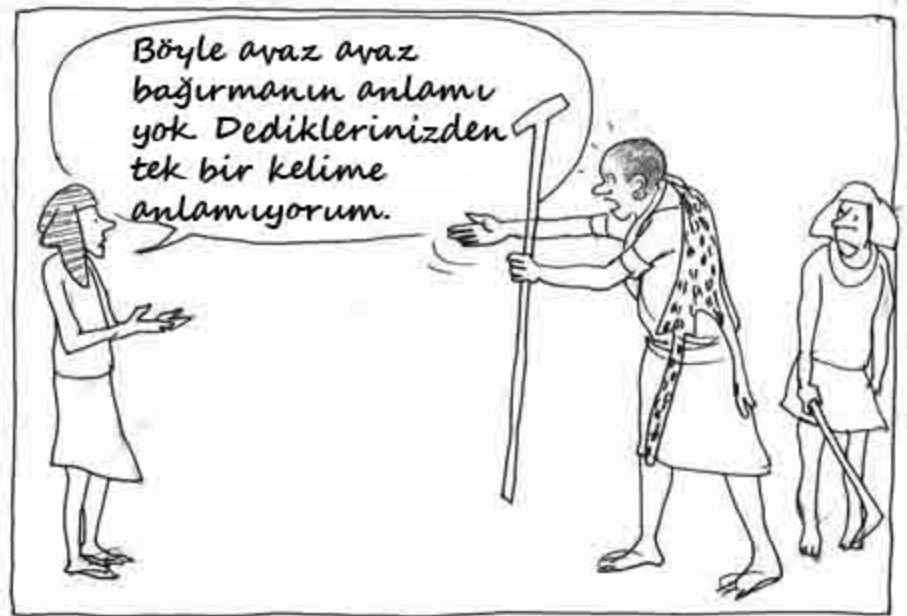 Böyle avaz avaz
bağırmanın anlamı
yok. Dediklerinizden
tek bir kelime
anlamıyorum.